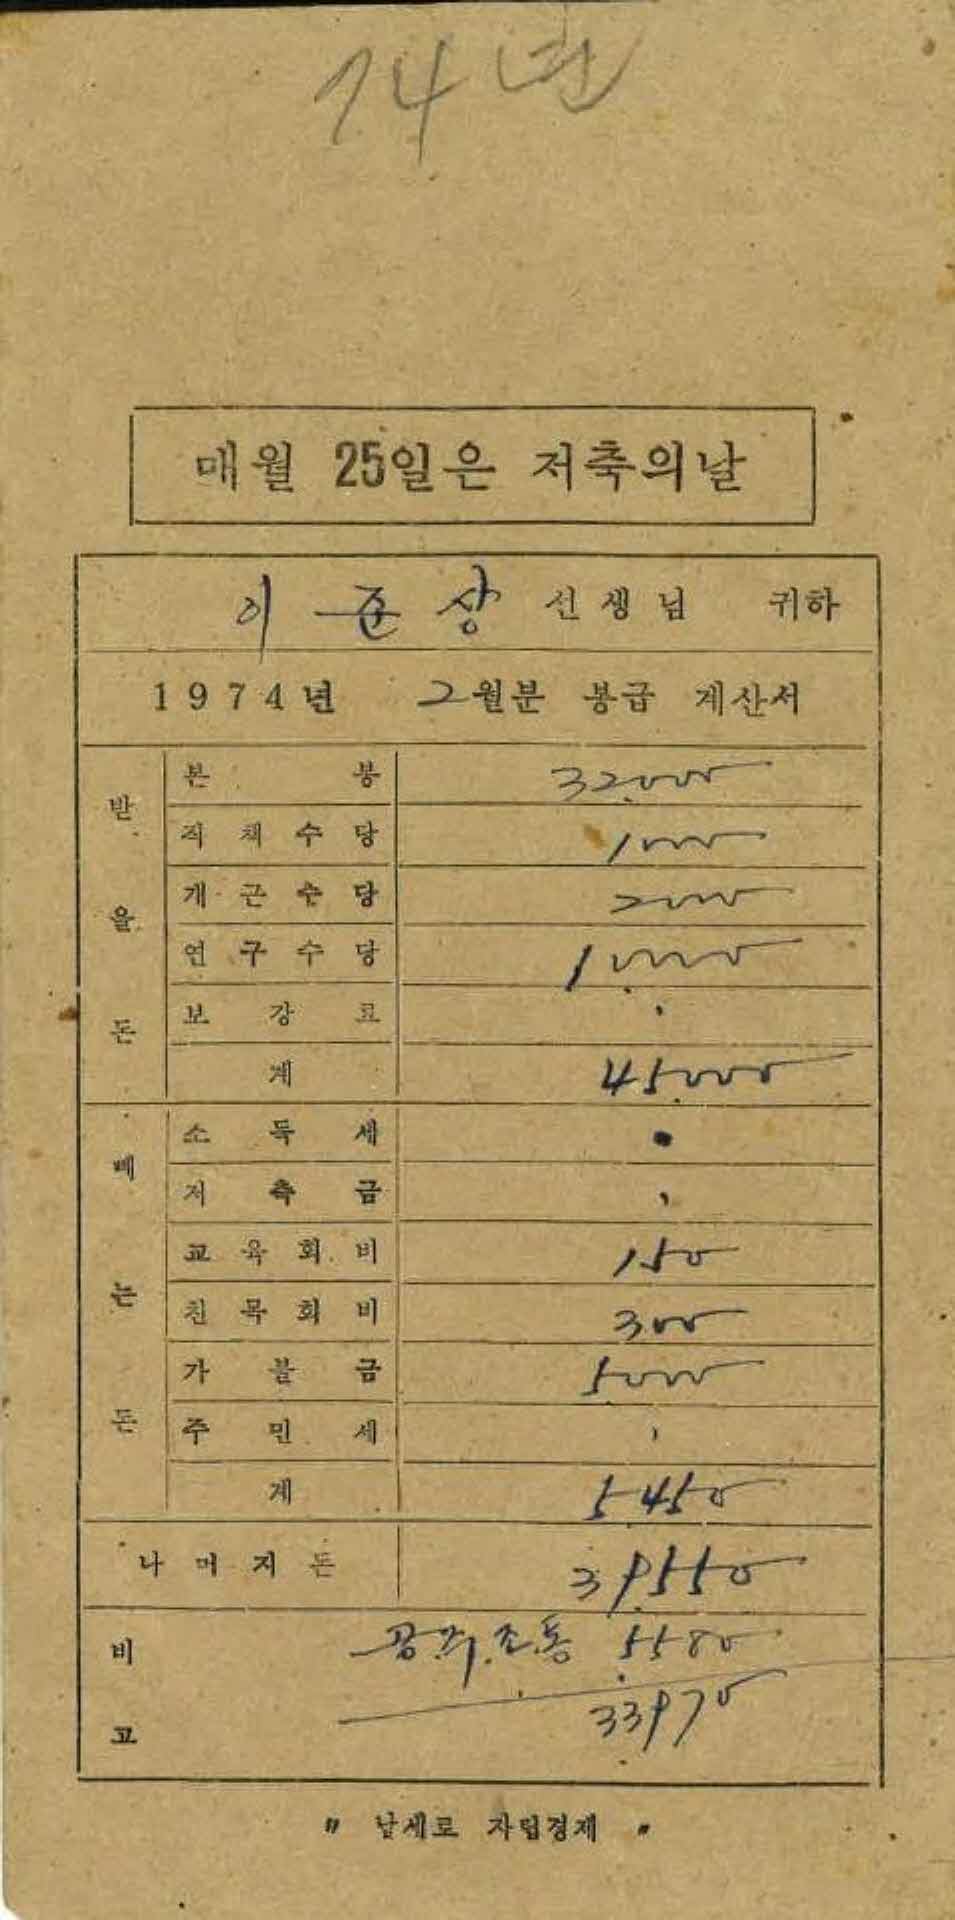 74년
매월 25일은 저축의날
이준상 선생님 귀하
1974년 2월분 봉급 계산서
받을돈
본봉 32000
직책수당 1000
개근수당 2000
연구수당 10000
보강료
계 45000
빼는돈
소득세
저축금
교육회비 150
친목회비 300
가불금 5000
주민세
계 5450
나머지돈 39550
비고
5580
33970
" 납세로 자립경제 "